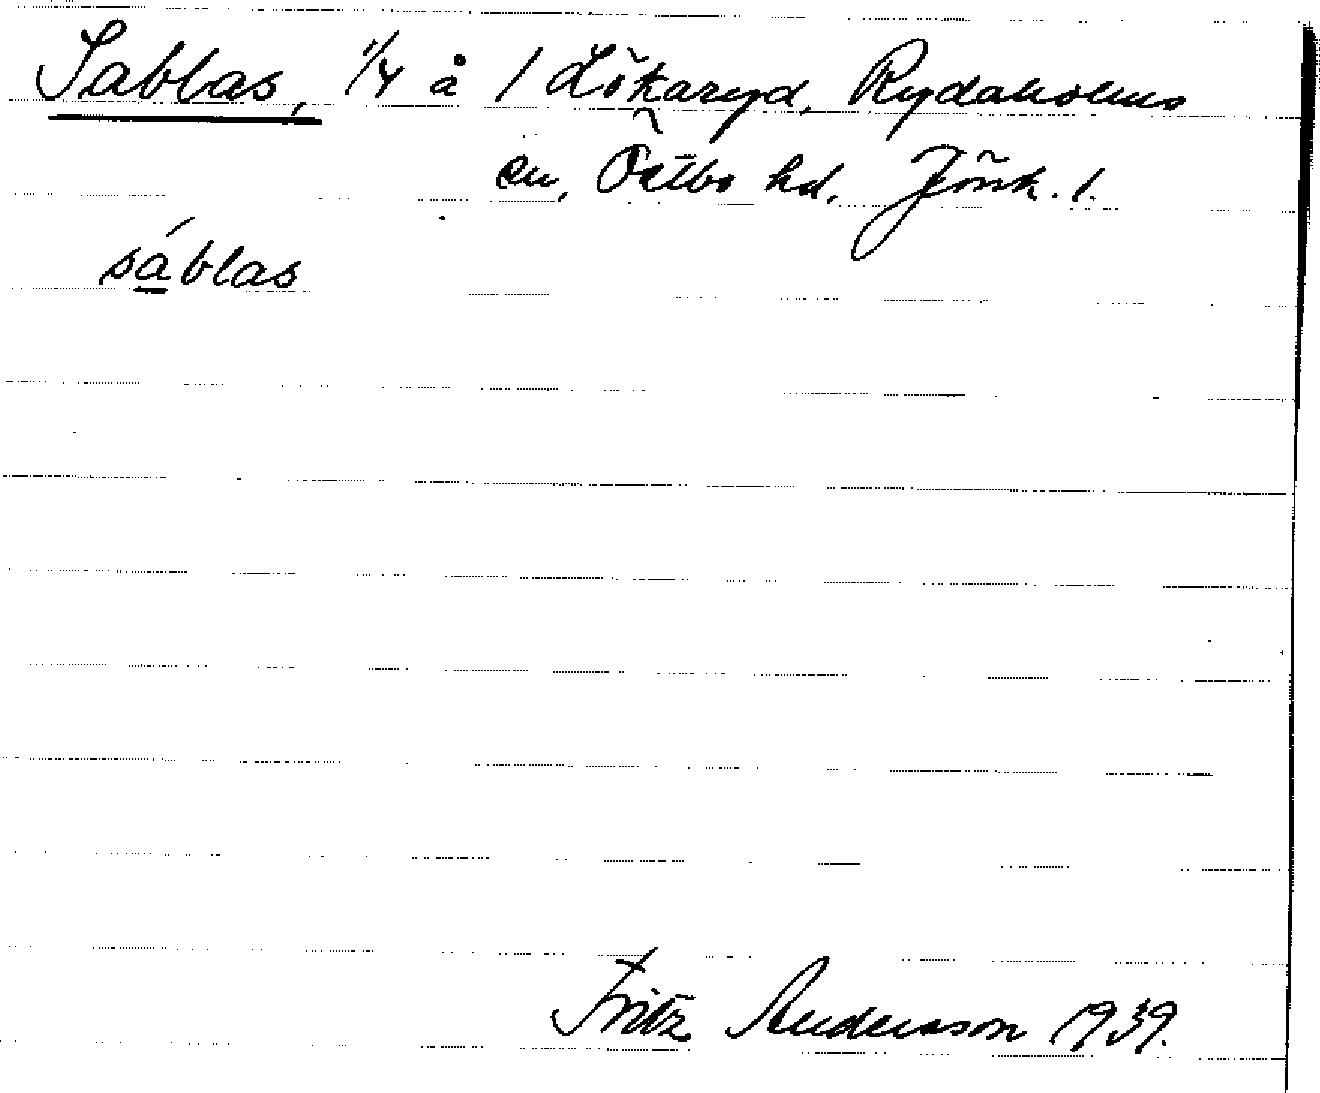 Sablas, 1/4 å 1 Lökaryd, Rydaholms
sn, Östbo hd. Jönk. l.
sáblas
Fritz Andersson 1939.